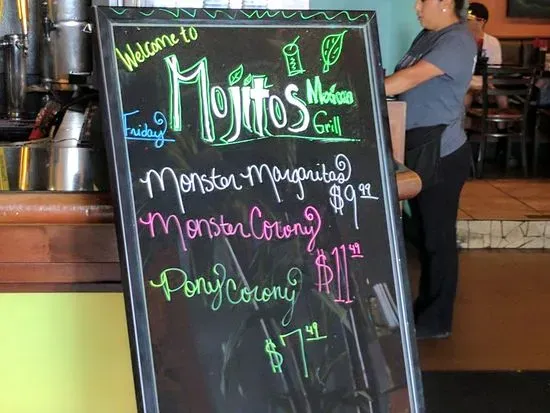 Welcome to
Mojitos
Mexican
Grill
Friday
Monster Margaritas
$9.99
Monster Corony
$11.49
Pony Corony
$7.49